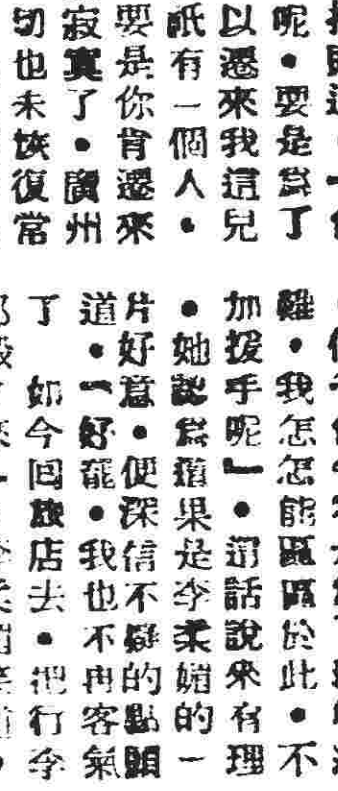 呢•要是為了
以遷來我這兒
祇有一個人•
要是你肯遷來
寂寞了•廣州
切也未恢復常
難•我怎怎能區區於此•不
加援手呢」•這話說來有理
•她認為這果是李柔媚的一
片好意•便深信不疑的點頭
道•「好罷•我也不再客氣
了 如今回旅店去•把行李